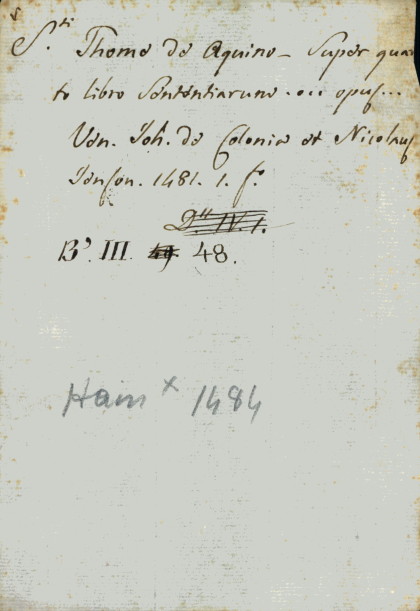 S.ti Thome de Aquino - Super quar
to libro Sententiarum ... opus...
Ven. Joh. de Colonia et Nicolaus
Jenson. 1481. 1. fo.
D" IV. 1.
B'. III 49 48.
Hain x 1484